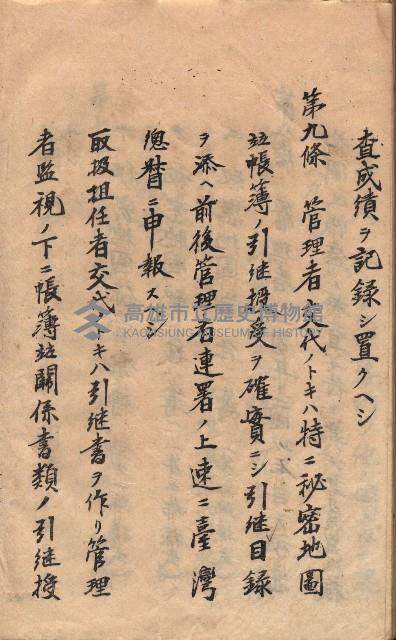 査成績ヲ記録シ置クヘシ
第九條　管理者交代ノトキハ特ニ秘密地圖
竝帳簿ノ引継授受ヲ確實ニシ引継目録
ヲ添ヘ前後管理者連署ノ上速ニ臺灣
總督ニ申報スヘシ
取扱担任者交代ノトキハ引継書ヲ作リ管理
者監視ノ下ニ帳簿竝關係書類ノ引継授
高雄市立歷史博物館
KAOHSIUNG MUSEUM OF HISTORY